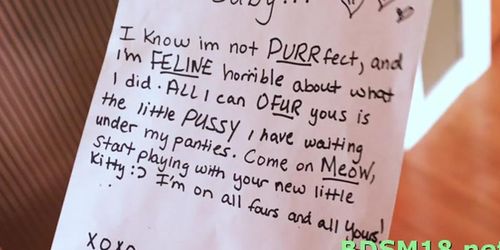 Baby...
I Know im not PURRfect, and
i'm FELINE horrible about what
I did. ALL I can OFUR yous is
the little PUSSY I have waiting
under my panties. Come on MeOW,
Start playing with your new little
Kitty:) I'm on all fours and all yours!
XOXO
BDSM18.ne